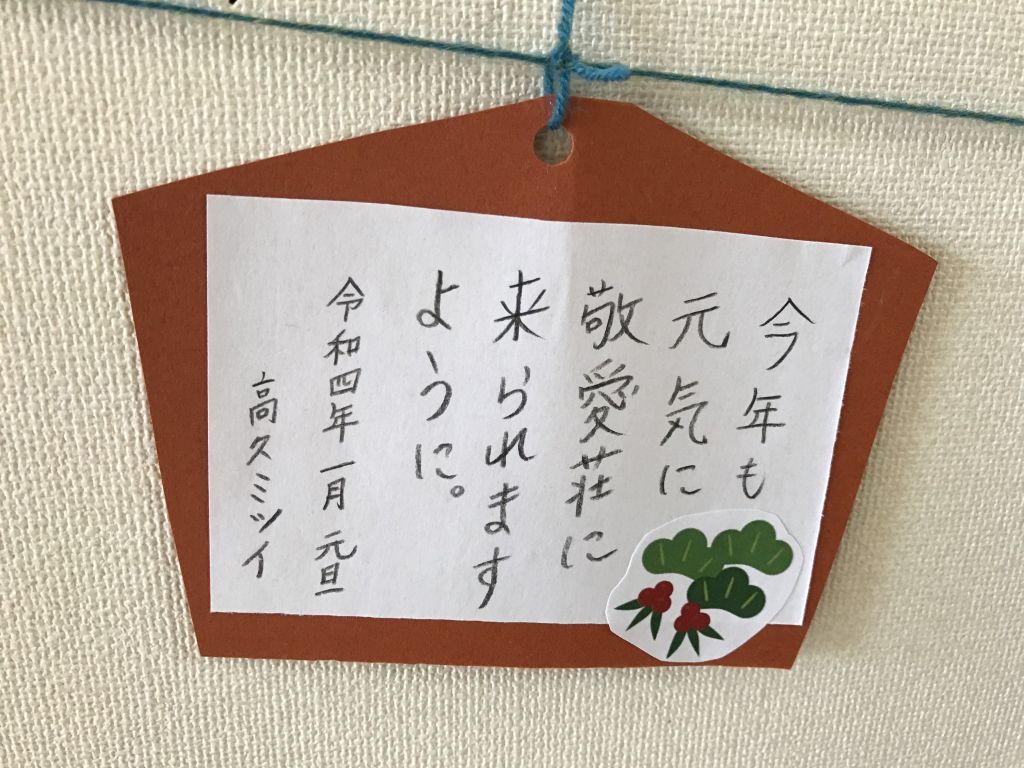 今年も
元気に
敬愛荘に
来られます
ように。
令和四年一月元旦
高久ミツイ